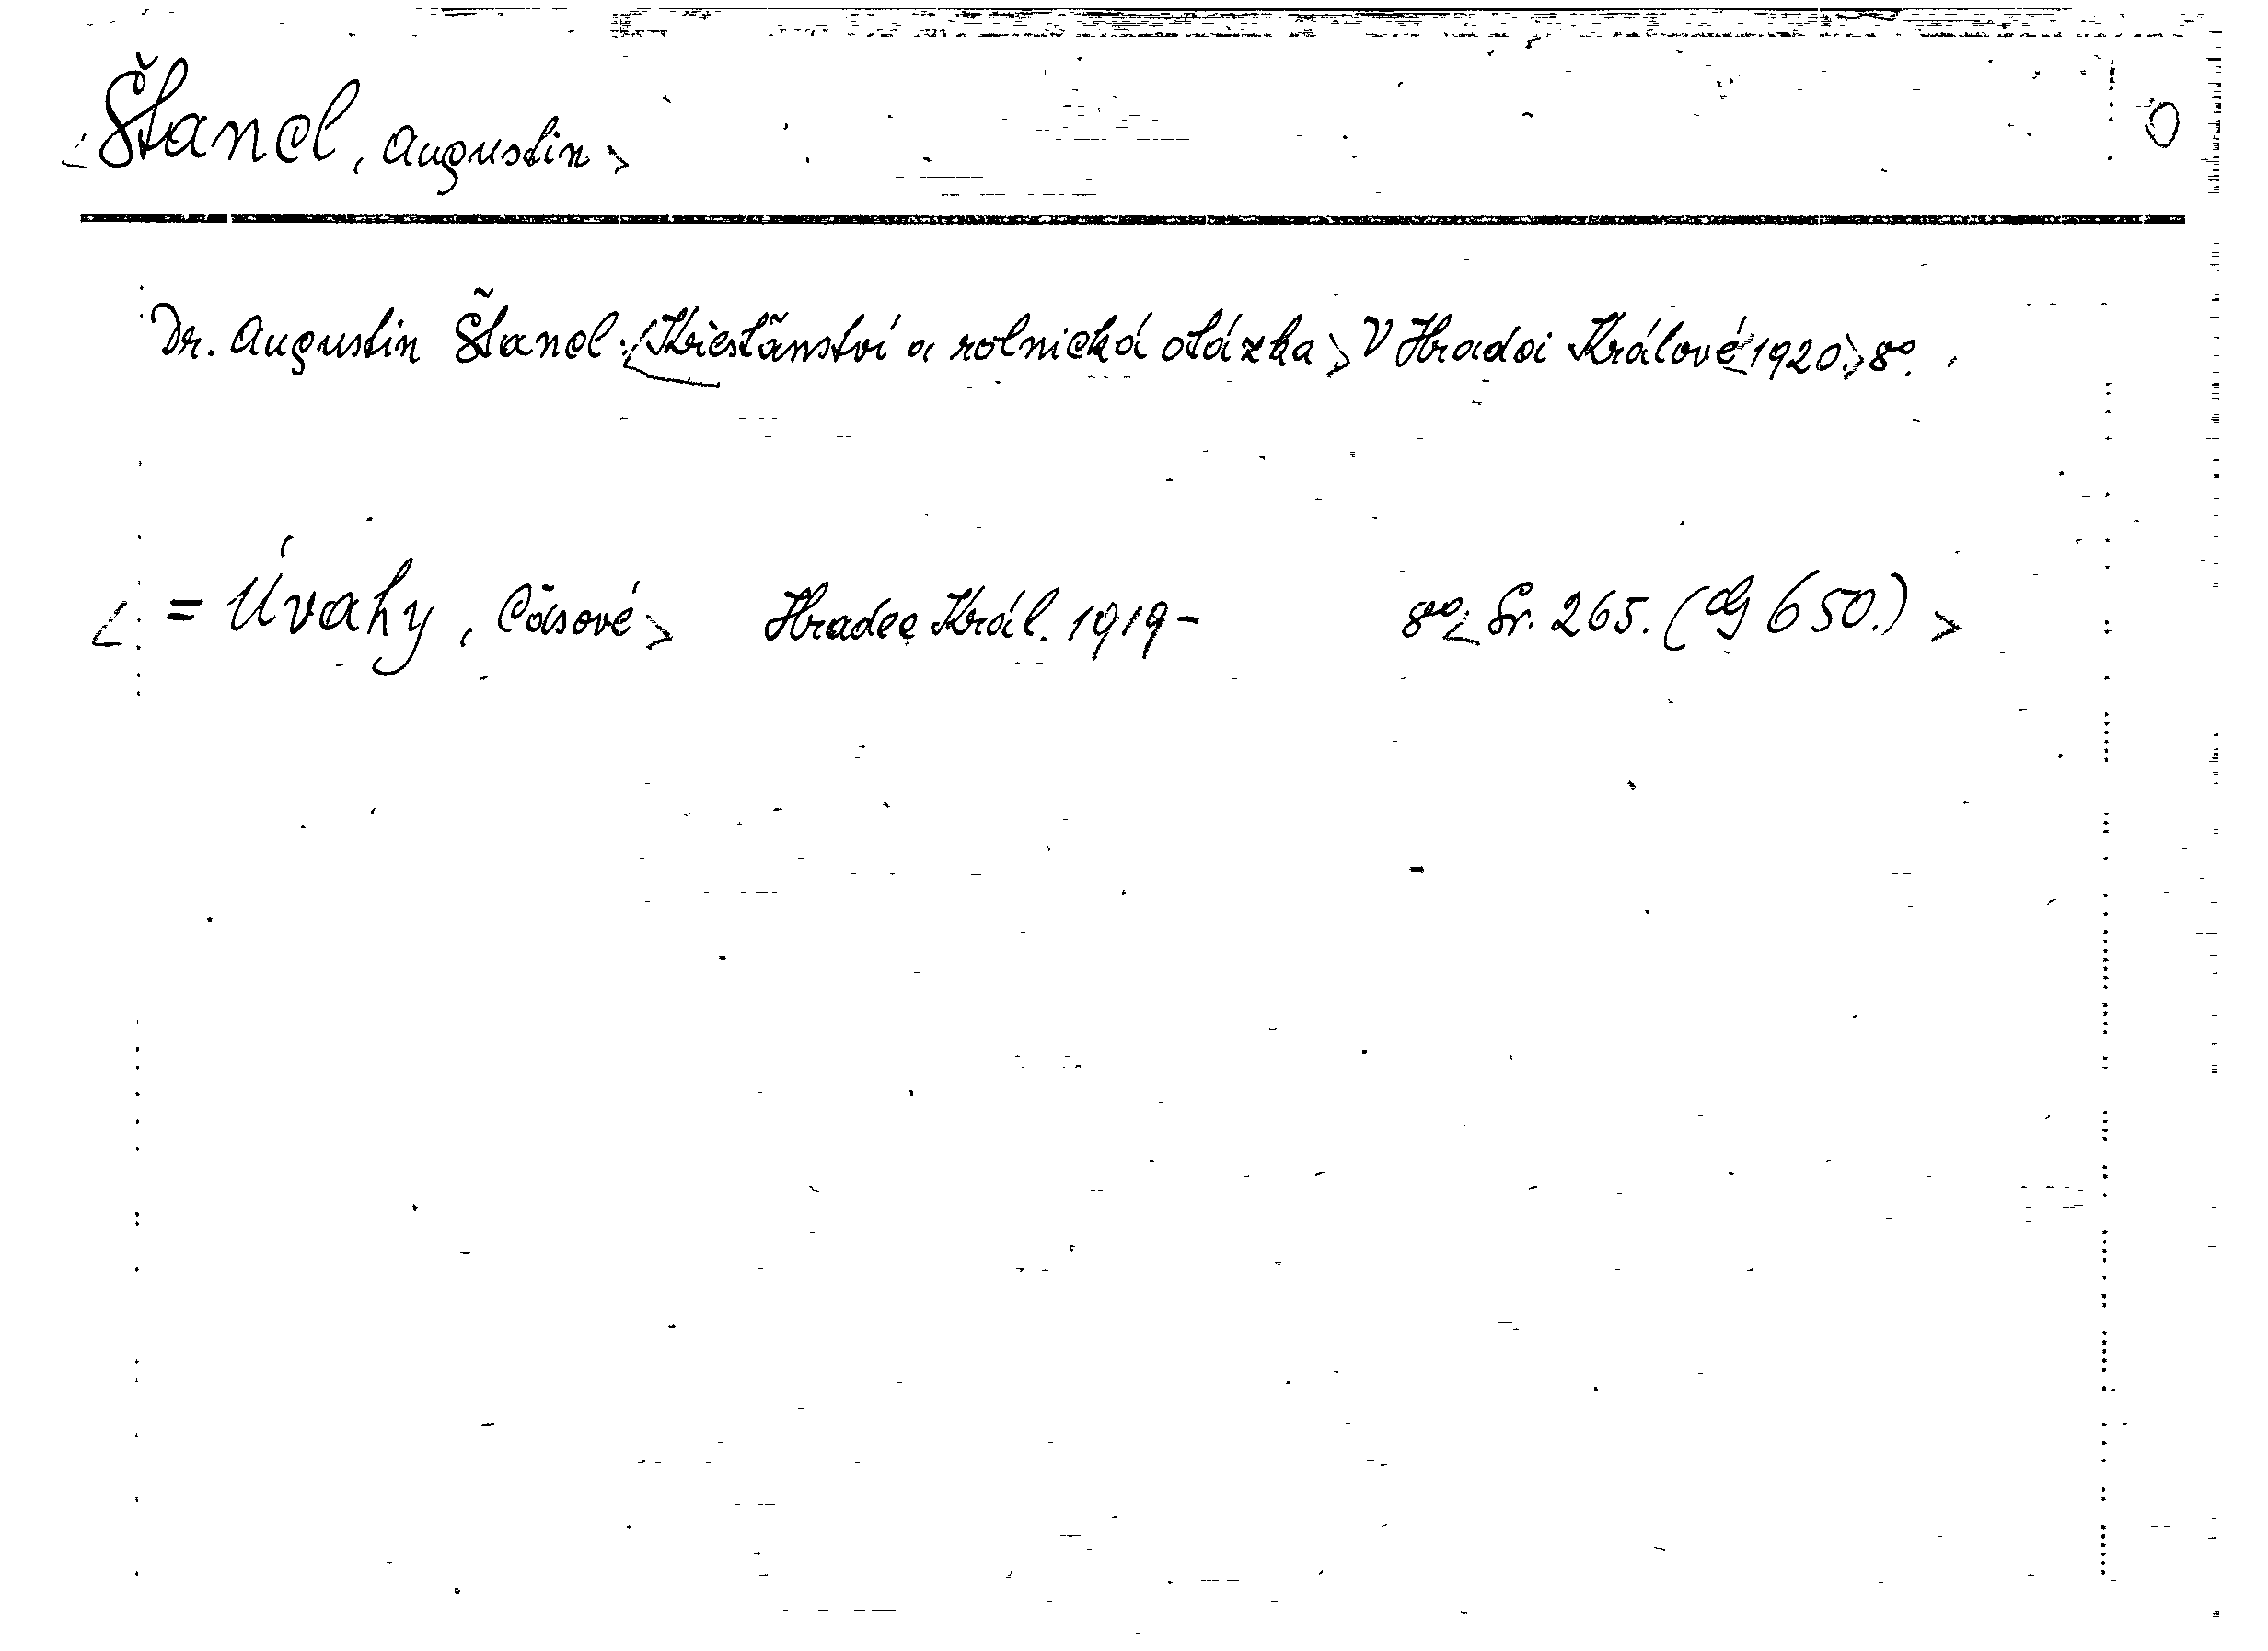 <Štancl, Augustin> O
Dr. Augustin Štancl: <Křesťanství a rolnická otázka> V Hradci Králové <1920.> 8°.
< = Úvahy, Časové> Hradec Král. 1919- 8° < Sv. 265. (G 650.) >